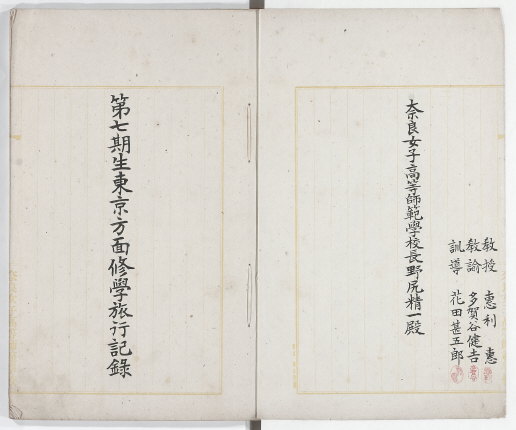 教授 惠利 惠
教諭 多賀谷健吉
訓導 花田甚五郎
奈良女子高等師範學校長野尻精一殿
第七期生東京方面修學旅行記錄